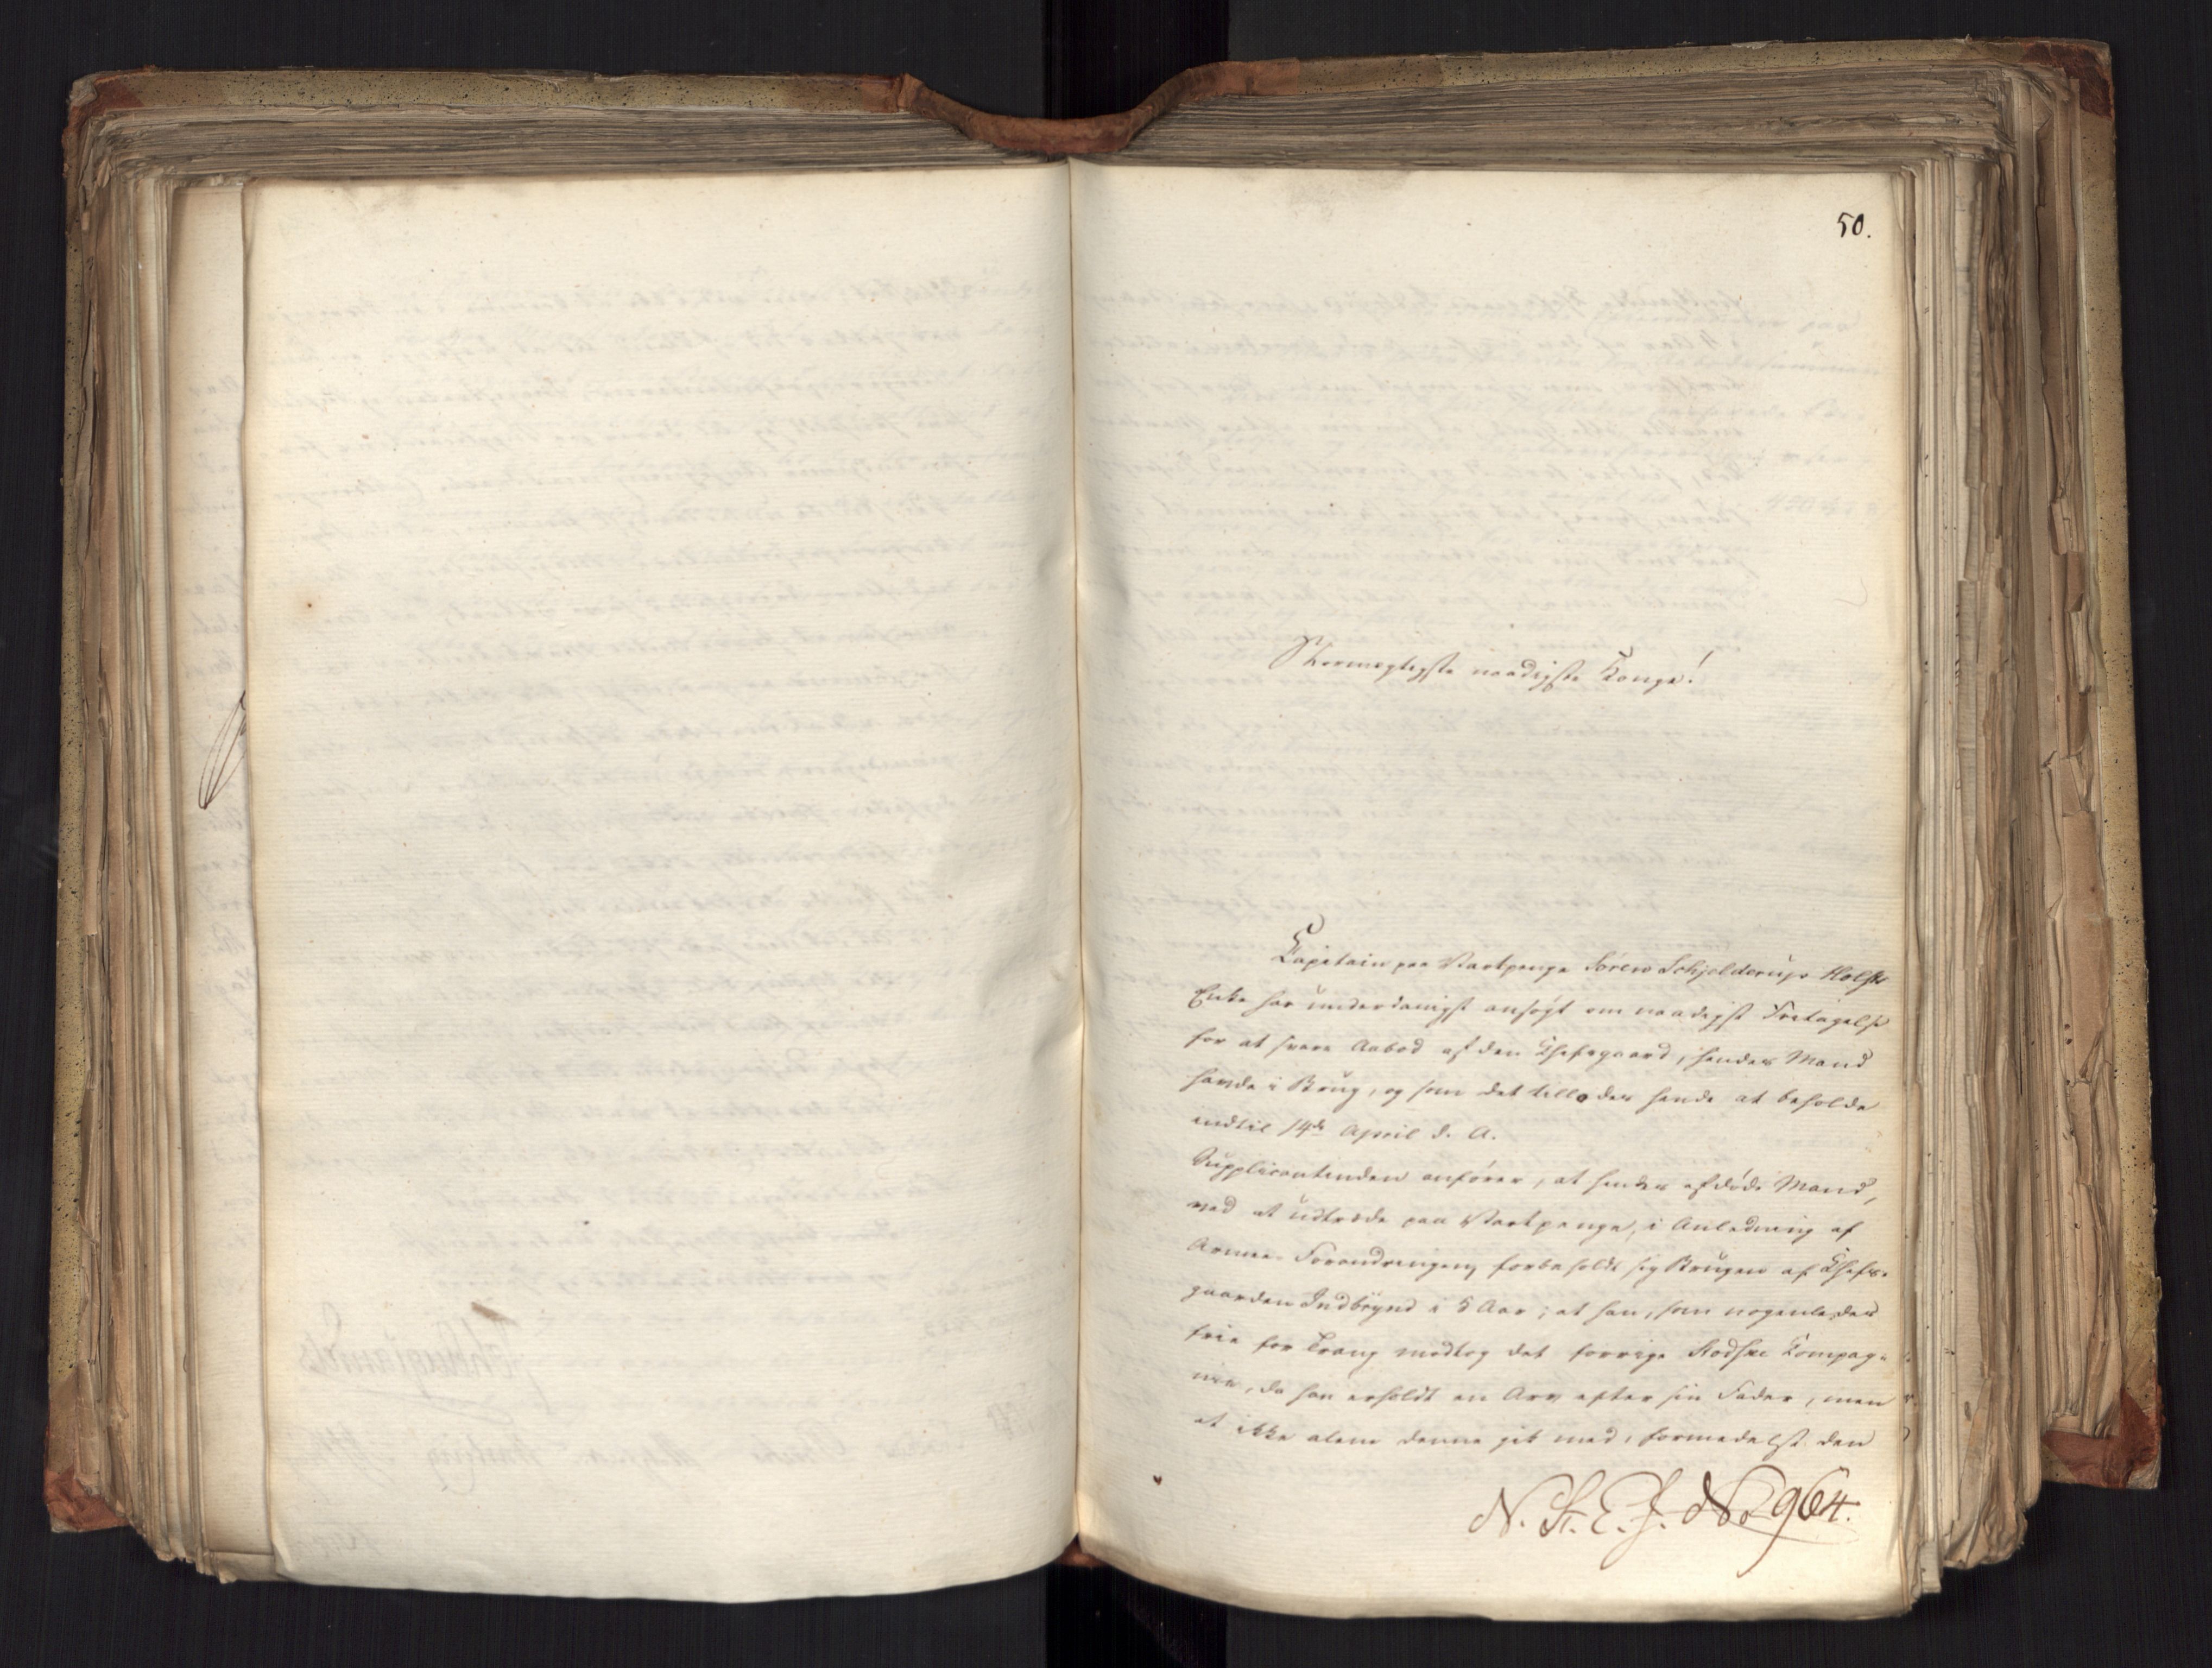 50.
Stormægtigste naadigste Konge!
Capitain paa Vartpenge Søren Schjelderup Holsts
Enke har underdanigst ansøgt om naadigst Fritagelse
for at svare Aabod af den Chefsgaard, hendes Mand
havde i Brug, og som det tillodes hende at beholde
indtil 14de April d. A.
Supplicantinden anfører, at hendes afdøde Mand,
ved at udtræde paa Vartpenge, i Anledning af
Armee-Forandringen, forbeholdt sig Brugen af Chefs-
gaarden Indbÿnd i 5 Aar; at han, som nogenledes
frie for Trang modtog det forrige Rodske Compag-
nie, da han erholdt en Arv efter sin Fader, men
at ikke alene denne gik med, formedelst den
N. St. E. J. No 964.